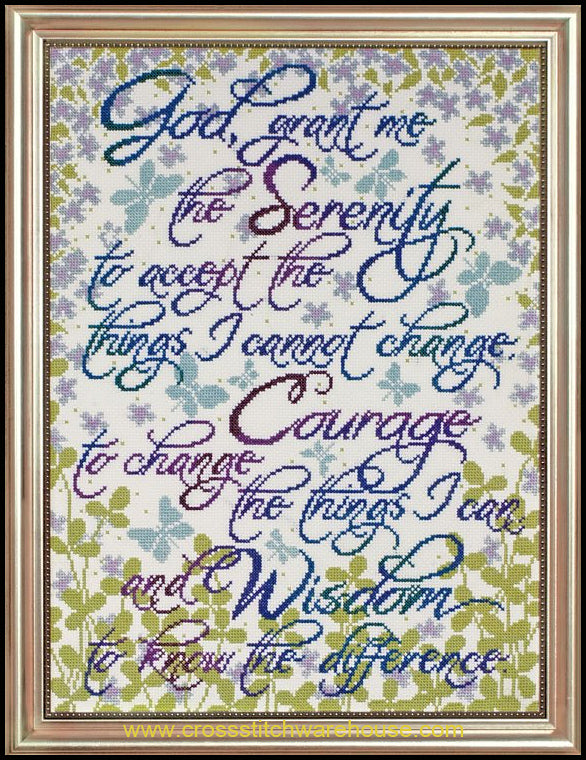 God, grant me
the Serenity
to accept the
things I cannot change,
Courage
to change
the things I can
and Wisdom
to know the difference
www.crossstitchwarehouse.com